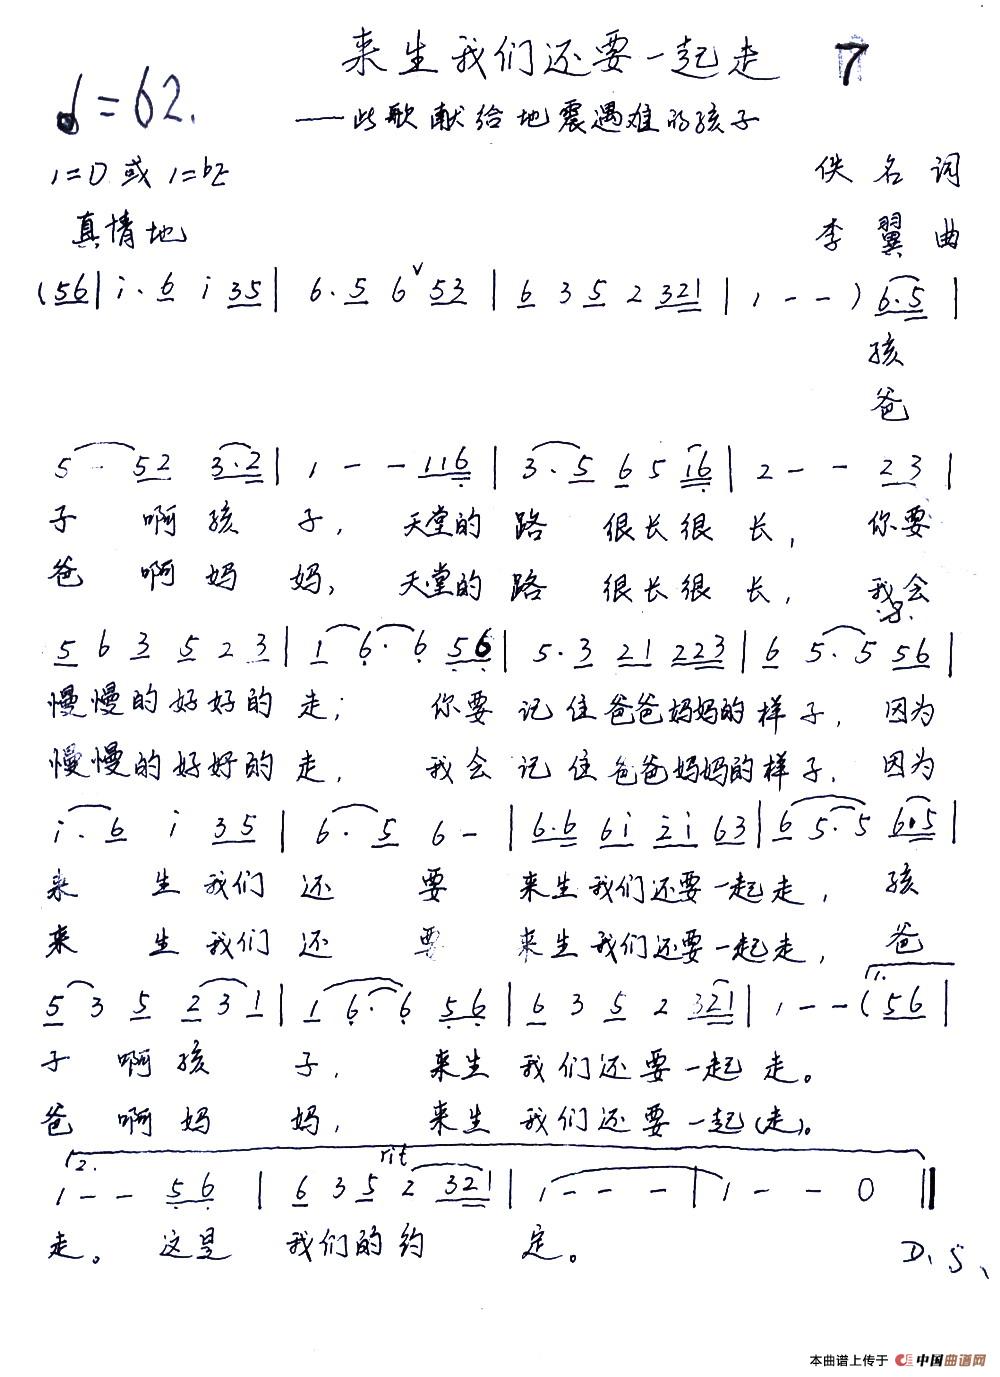 来生我们还要一起走 7
♩=62.
——此歌献给地震遇难的孩子
1=D 或 1=bE
佚名词
真情地
李翼曲
(56 | i. 6 i 35 | 6. 5 6 ∨ 53 | 6 3 5 2 321 | 1 - - ) 6.5 |
孩
爸
5 - 52 3.2 | 1 - - 116 | 3. 5 6 5 16 | 2 - - 23 |
子 啊孩 子, 天堂的 路 很长很 长, 你要
爸 啊妈 妈, 天堂的 路 很长很 长, 我会
5 6 3 5 2 3 | 1 6. 6 56 | 5. 3 21 223 | 6 5. 5 56 |
慢慢的好好的 走; 你要 记住爸爸妈妈的样子, 因为
慢慢的好好的 走, 我会 记住爸爸妈妈的样子, 因为
i. 6 i 35 | 6. 5 6 - | 6.6 6i 2i 63 | 6 5. 5 6.5 |
来 生我们 还 要 来生我们还要一起走, 孩
来 生我们 还 要 来生我们还要一起走, 爸
1.
5 3 5 2 3 1 | 1 6. 6 56 | 6 3 5 2 321 | 1 - - ( 56 |
子 啊孩 子, 来生 我们还要一起 走。
爸 啊妈 妈, 来生 我们还要一起(走)。
2. rit
1 - - 56 | 6 3 5 2 321 | 1 - - - | 1 - - 0 ‖
走。 这是 我们的约 定。
D.S.
本曲谱上传于 中国曲谱网